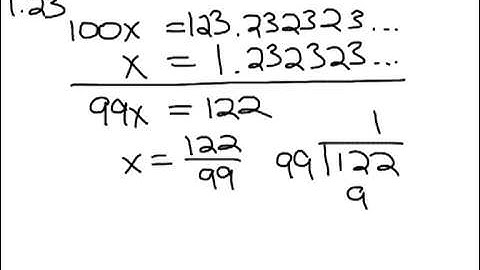 1.23
100x = 123.232323...
x = 1.232323...
99x = 122
1
x = 122/99 99)122
9